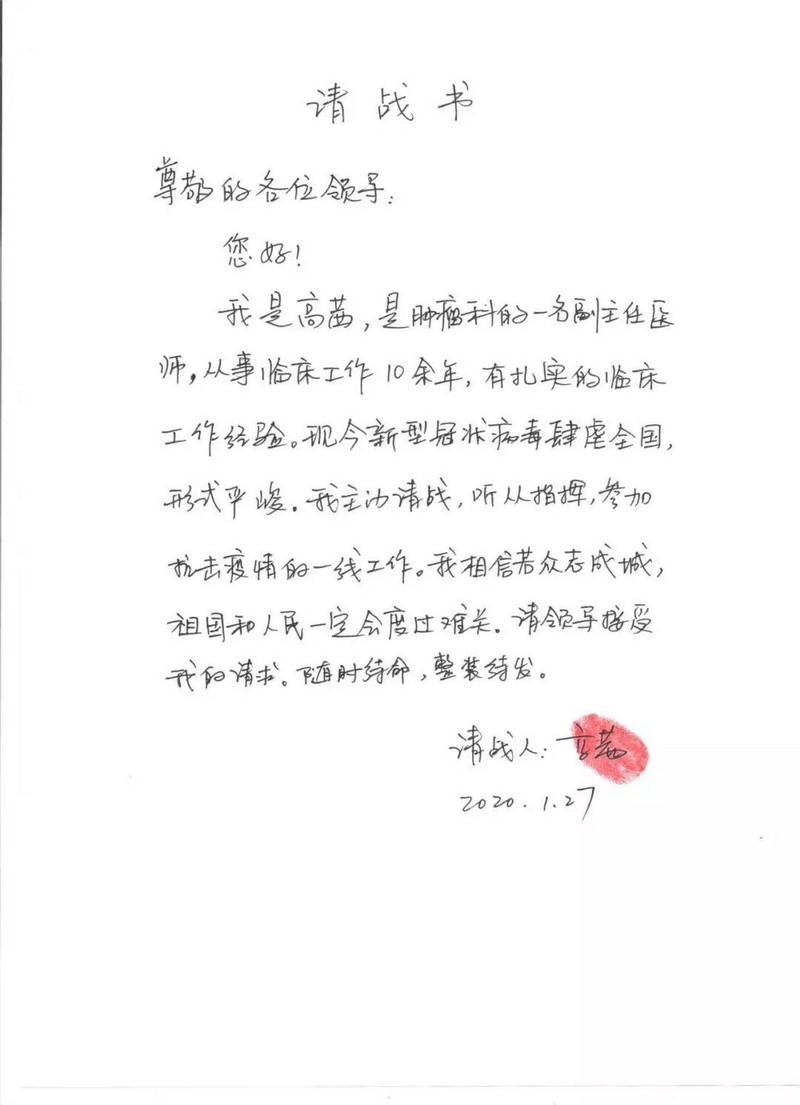 请战书
尊敬的各位领导:
您好!
我是高茜,是肿瘤科的一名副主任医
师,从事临床工作10余年,有扎实的临床
工作经验。现今新型冠状病毒肆虐全国,
形式严峻。我主动请战,听从指挥,参加
抗击疫情的一线工作。我相信若众志成城,
祖国和人民一定会度过难关。请领导接受
我的请求。随时待命,整装待发。
请战人:高茜
2020.1.27